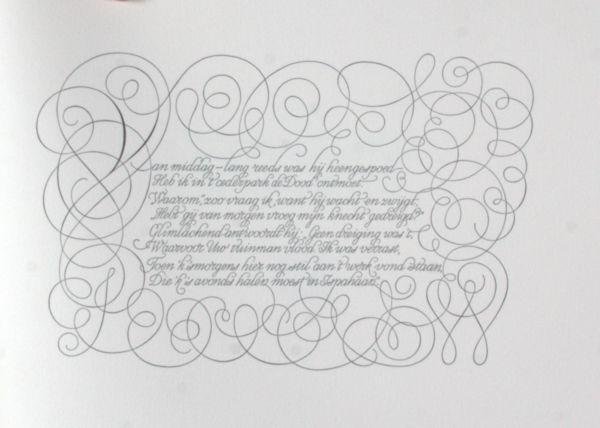 Van middag – lang reeds was hij heengespoed –
Heb ik in 't cederpark de Dood ontmoet.
"Waarom," zoo vraag ik, want hij wacht en zwijgt,
"Hebt gij van morgen vroeg mijn knecht gedreigd?"
Glimlachend antwoordt hij: "Geen dreiging was 't,
Waarvoor Uw tuinman vlood. Ik was verrast,
Toen 'k 's morgens hier nog stil aan 't werk vond staan,
Die 'k 's avonds halen moest in Ispahaan."